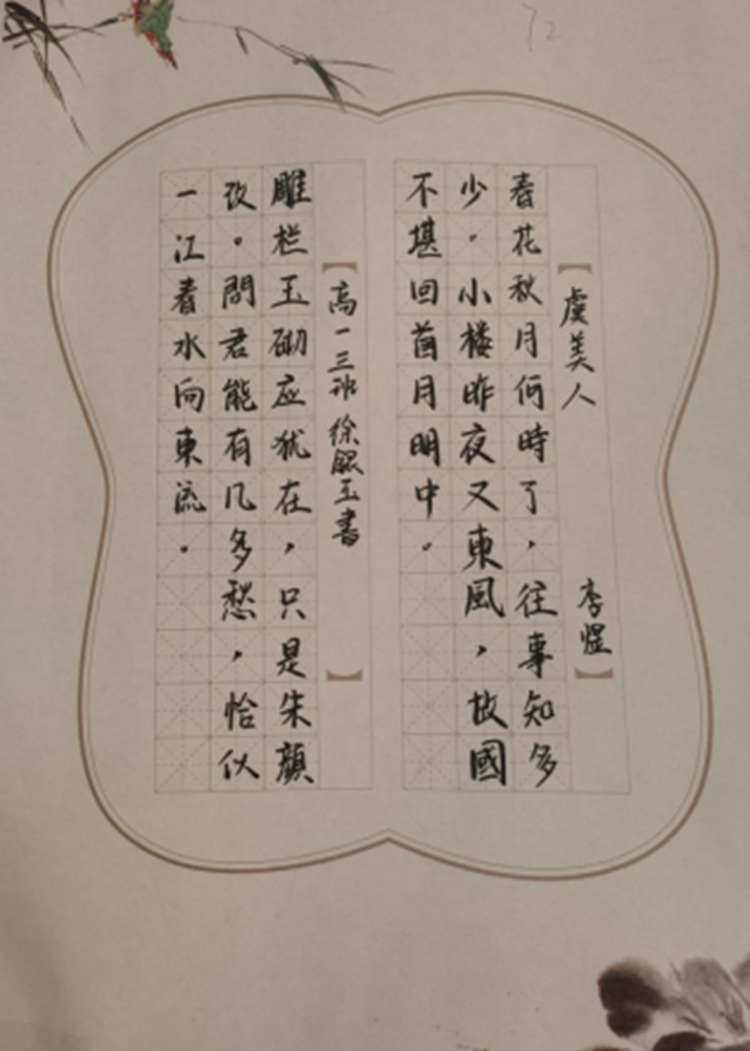 72
虞美人 李煜
春花秋月何時了，往事知多
少。小楼昨夜又東風，故國
不堪回首月明中。
高一三班 徐

玉書
雕栏玉砌应犹在，只是朱顏
改。問君能有几多愁，恰似
一江春水向東流。